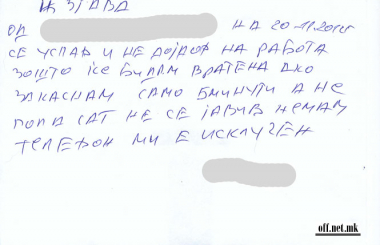 ИЗЈАВА
ОД НА 20.11.2015
СЕ УСПАВ И НЕ ДОЈДОВ НА РАБОТА
ЗОШТО ЌЕ БИДАМ ВРАТЕНА АКО
ЗАКАСНАМ САМО 6 МИНУТИ А НЕ
ПОЛА САТ НЕ СЕ ЈАВИВ НЕМАМ
ТЕЛЕФОН МИ Е ИСКЛУЧЕН
off.net.mk